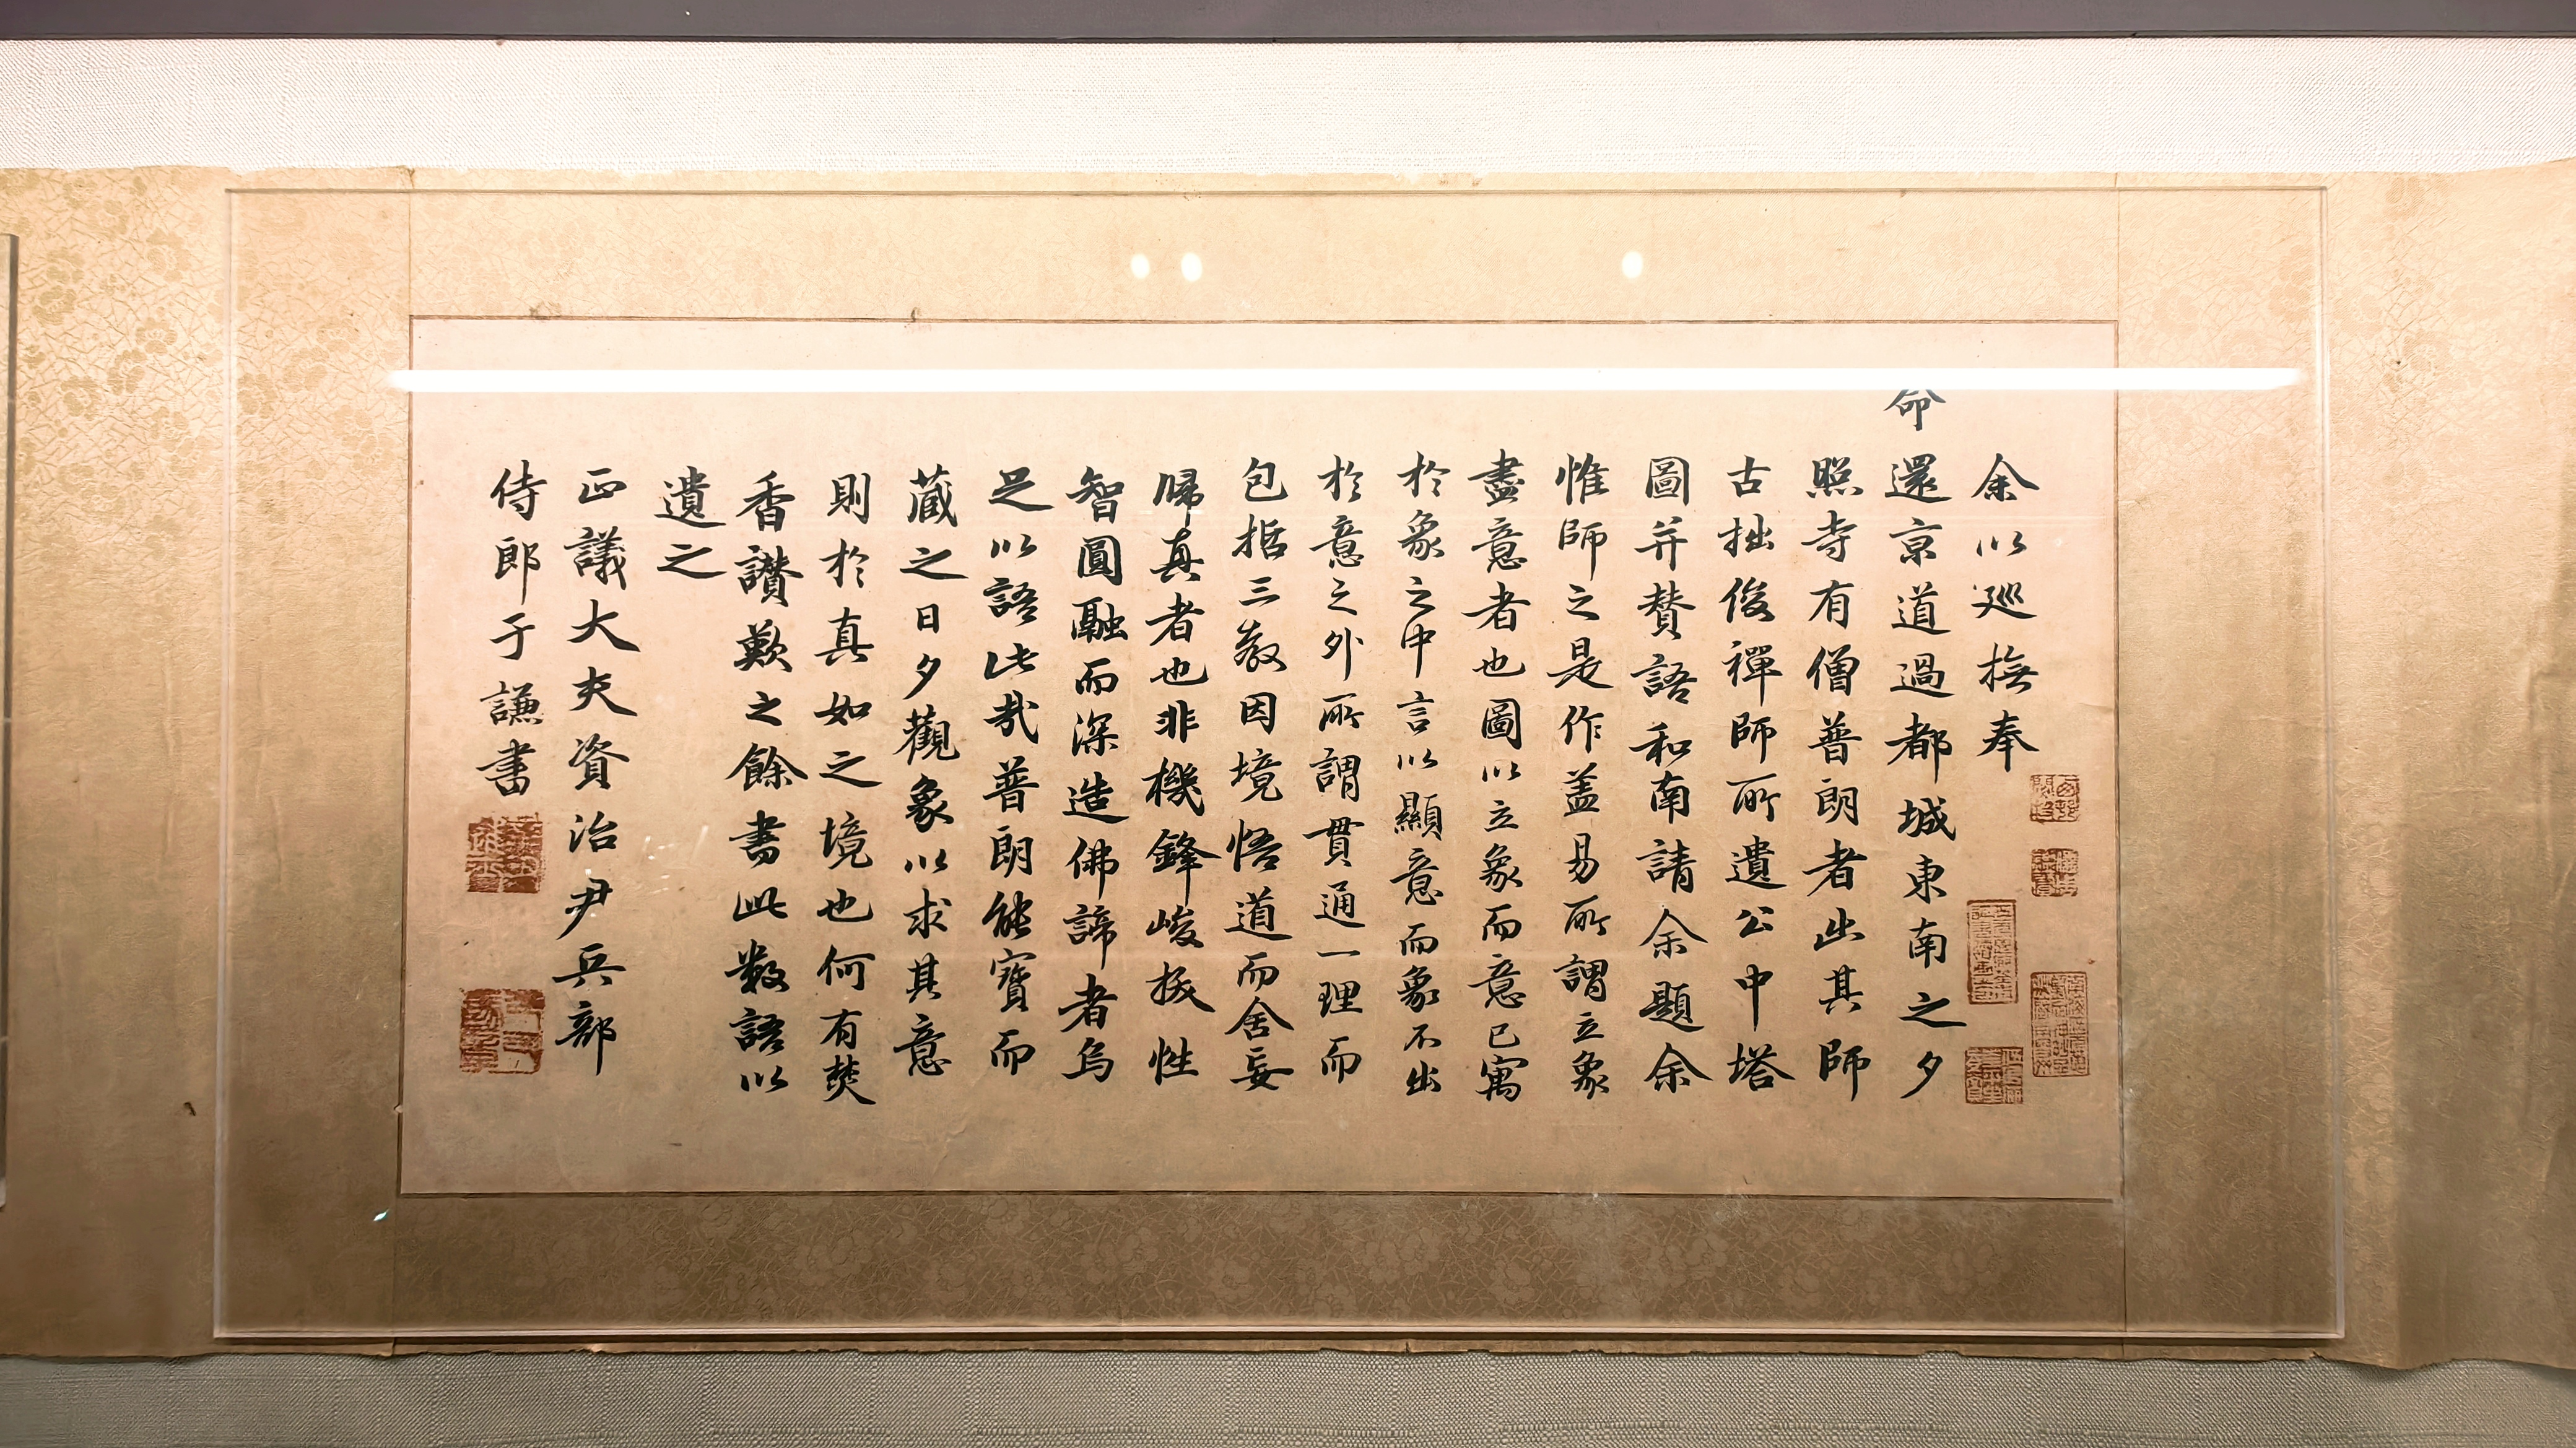 余以廵撫奉
命還京道過都城東南之夕
照寺有僧普朗者出其師
古拙俊禪師所遺公中塔
圖并賛語和南請余題余
惟師之是作盖易所謂立象
盡意者也圖以立象而意已寓
於象之中言以顯意而象不出
於意之外所謂貫通一理而
包括三教因境悟道而舍妄
歸真者也非機鋒峻拔性
智圓融而深造佛諦者烏
足以語此哉普朗能寳而
蔵之日夕觀象以求其意
則於真如之境也何有焚
香讃歎之餘書此數語以
遺之
正議大夫資治尹兵部
侍郎于謙書